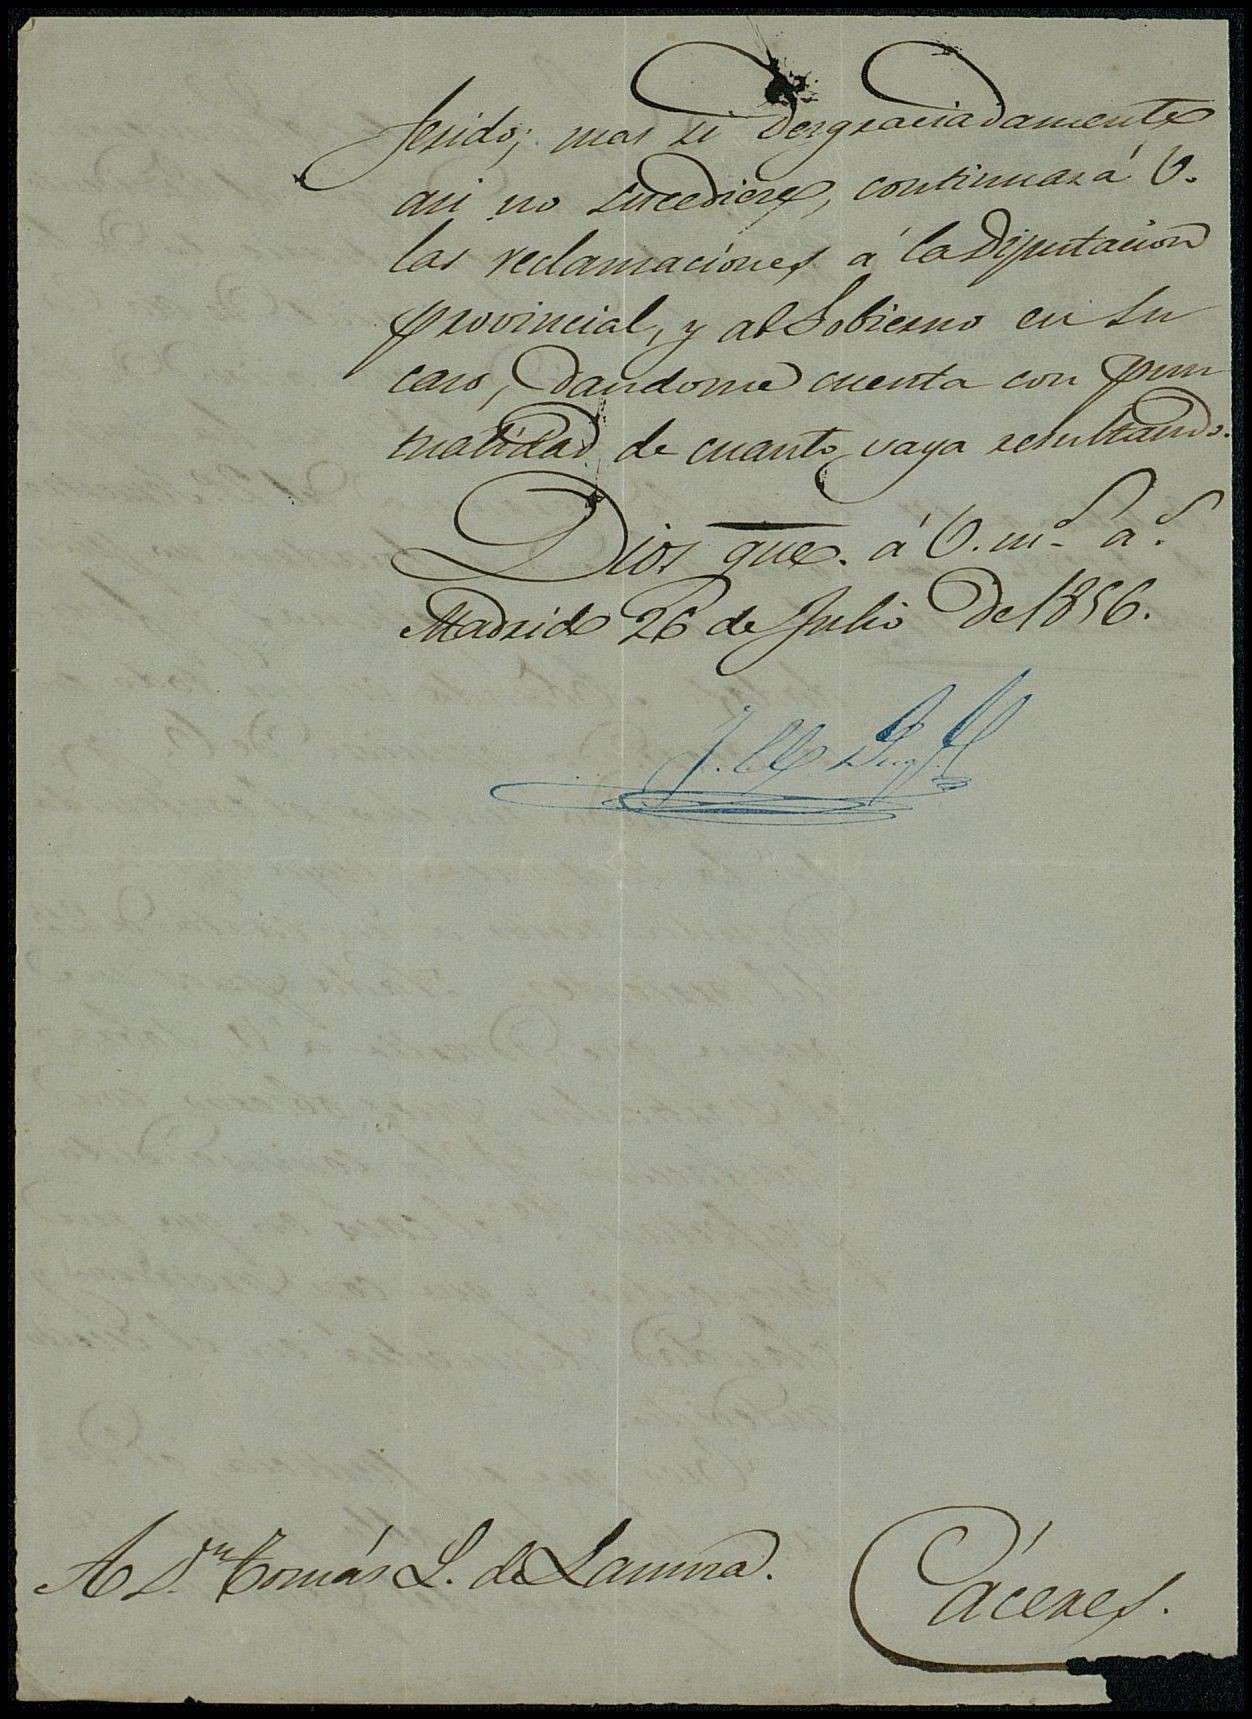 ferido; mas si desgraciadamente
asi no sucediere, continuará V.
las reclamaciones á la Diputacion
provincial, y al Gobierno en su
caso, dandome cuenta con pun
tualidad de cuanto vaya resultando.
Dios gue. á V. ms. as.
Madrid 26 de Julio de 1856.
A Dn. Tomás L. de Lamina.
Cáceres.